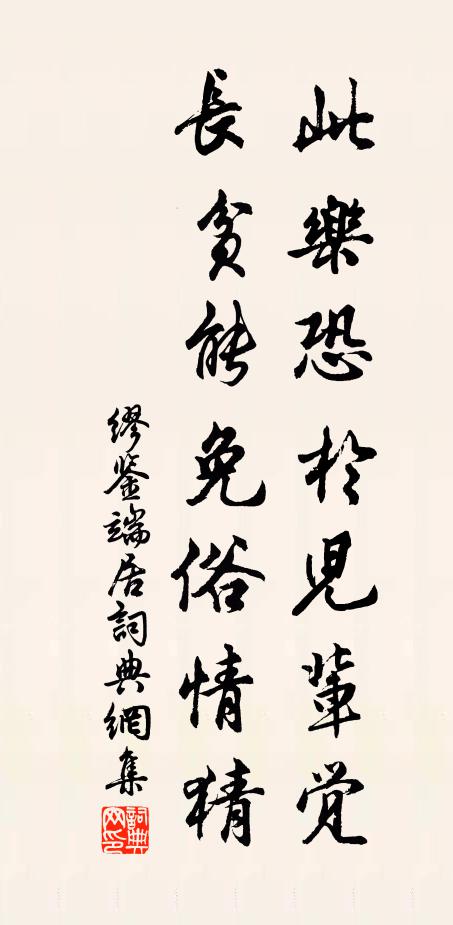 此樂恐於兒輩覺
長貧能免俗情猜
繆鉴端居詞典網集
詞典网印